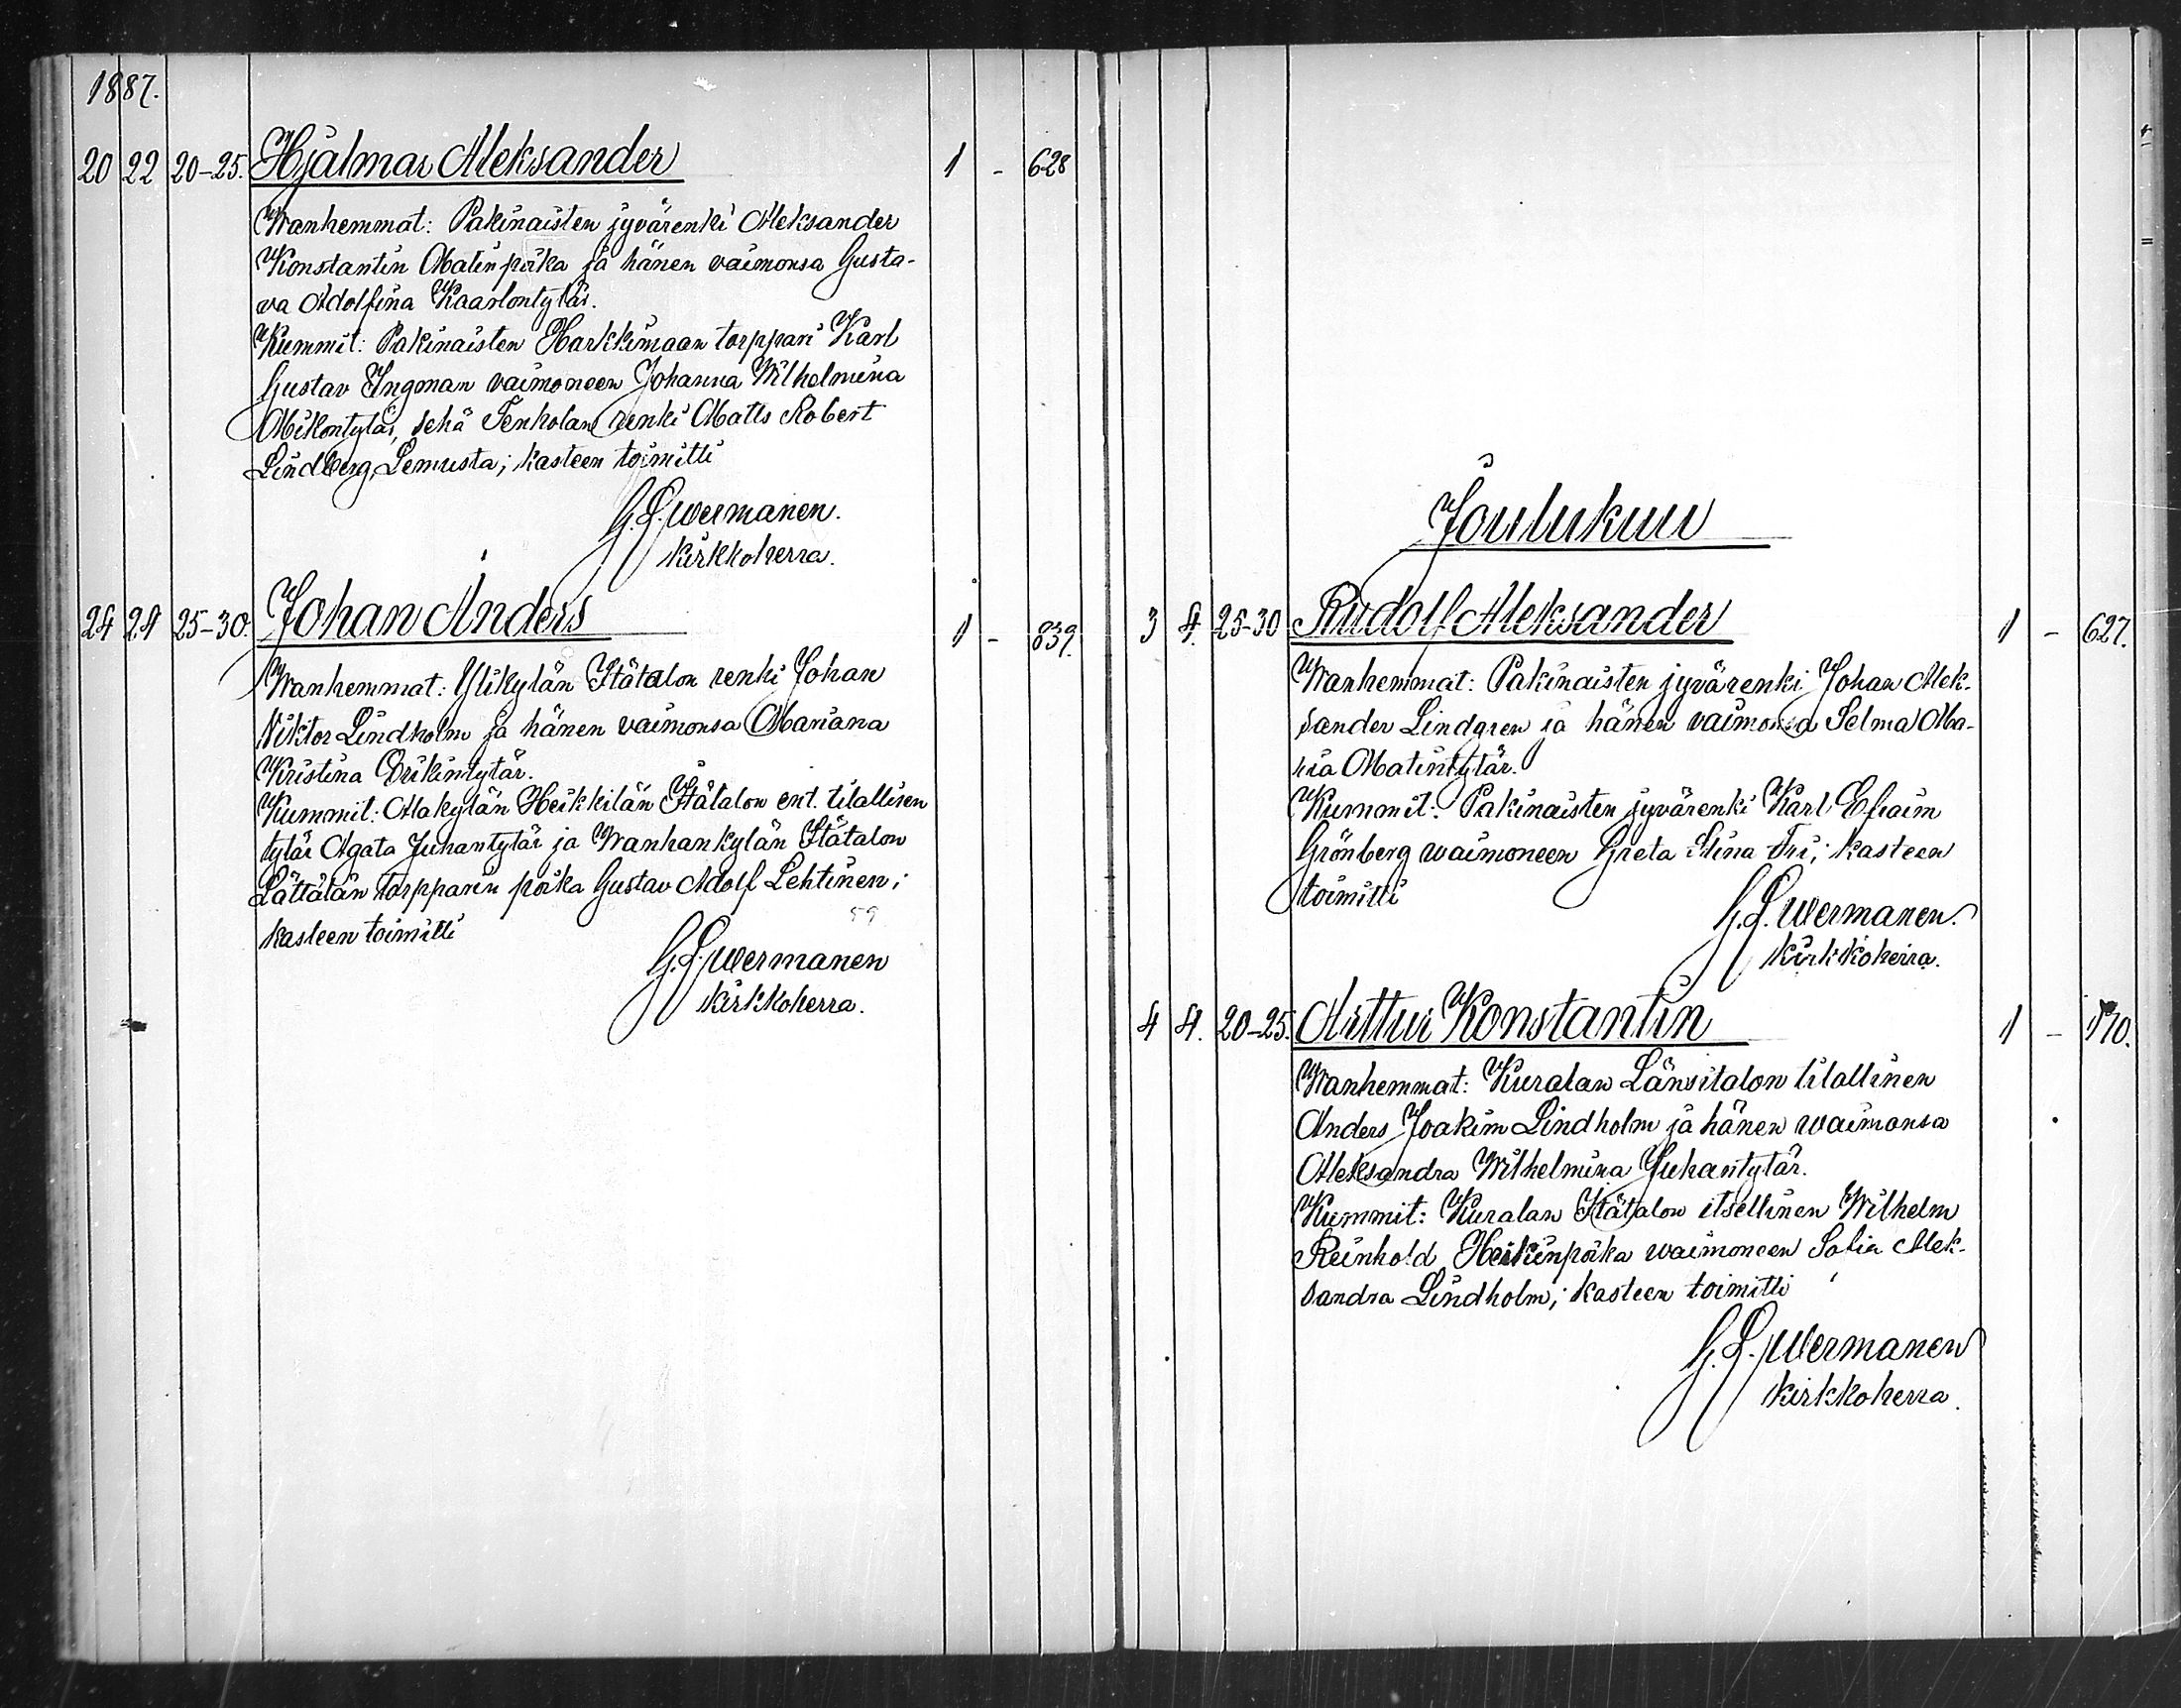 1887.
20 22 20-25. Hjalmar Aleksander 1 - 628
Wanhemmat: Pakinaisten jyvärenki Aleksander
Konstantin Matinpoika ja hänen vaimonsa Gusta-
va Adolfina Kaarlontytär.
Kummit: Pakinaisten Harkkimaan torppari Karl
Gustav Ingman vaimoneen Johanna Wilhelmina
Mikontytär, sekä Tenholan renki Matts Robert
Lindberg, Lemusta; kasteen toimitti
G. L. Wermanen.
kirkkoherra.
24 24 25-30. Johan Anders 1 - 839.
Wanhemmat: Ylikylän Itätalon renki Johan
Viktor Lindholm ja hänen vaimonsa Mariana
Kristina Erikintytär.
Kummit: Alakylän Heikkilän Itätalon ent. tilallisen
tytär Agata Juhantytär ja Wanhankylän Itätalon
Lättälän torpparin poika Gustav Adolf Lehtinen;
kasteen toimitti
59
G. L. Wermanen
kirkkoherra.
Joulukuu
3 4. 25-30 Rudolf Aleksander 1 - 627.
Wanhemmat: Pakinaisten jyvärenki Johan Alek-
sander Lindgren ja hänen vaimonsa Selma Ma-
ria Matintytär.
Kummit: Pakinaisten jyvärenki Karl Efraim
Grönberg waimoneen Greta Stina; kasteen
toimitti
G. L. Wermanen.
kirkkoherra.
4 4. 20-25. Arttur Konstantin 1 - 170.
Wanhemmat: Kuralan Länsitalon tilallinen
Anders Joakim Lindholm ja hänen waimonsa
Aleksandra Wilhelmina Juhantytär.
Kummit: Kuralan Itätalon itsellinen Wilhelm
Reinhold Heikinpoika waimoneen Sofia Alek-
sandra Lindholm; kasteen toimitti
G. L. Wermanen
kirkkoherra.